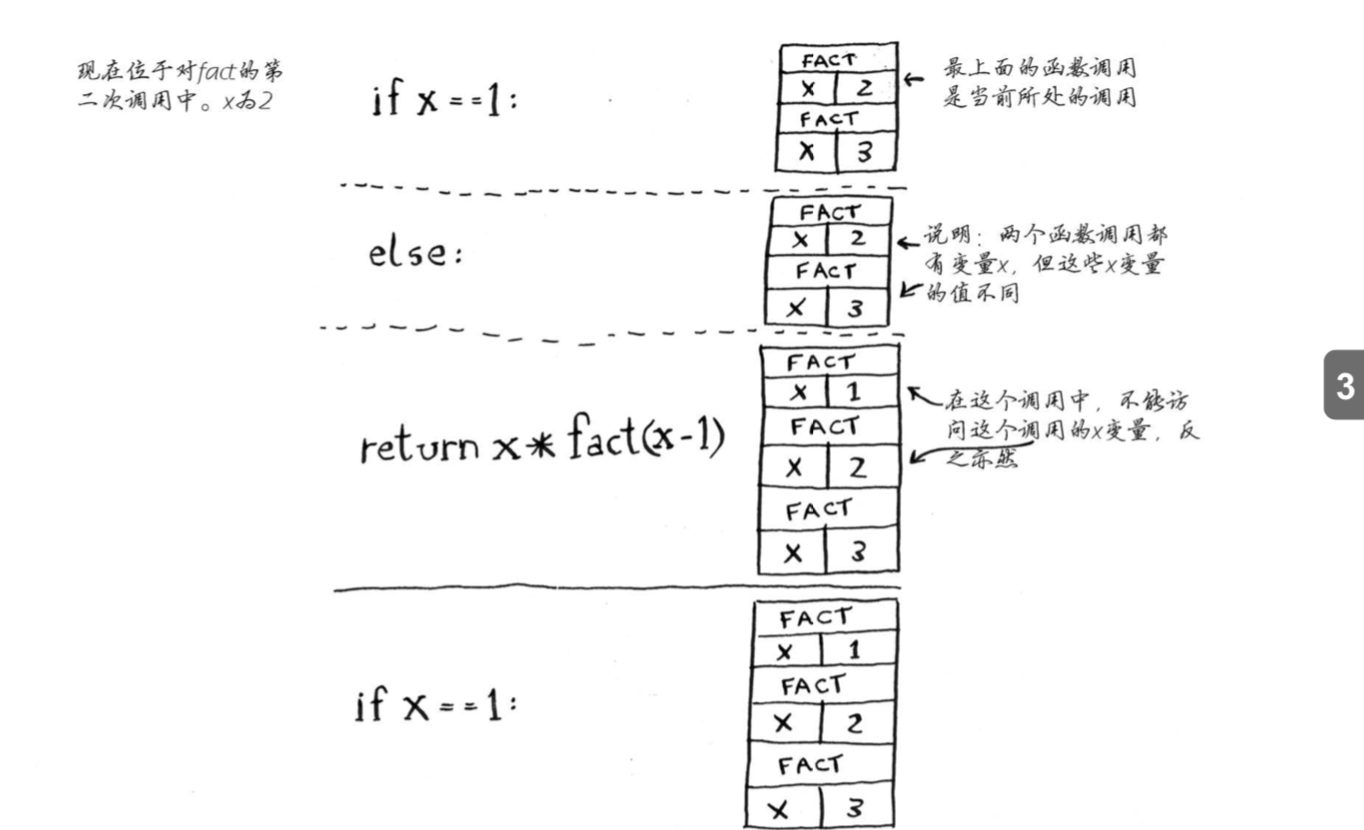 现在位于对fact的第
二次调用中。x为2
if x==1:
FACT
x 2
FACT
x 3
最上面的函数调用
是当前所处的调用
else:
FACT
x 2
FACT
x 3
说明：两个函数调用都
有变量x，但这些x变量
的值不同
return x*fact(x-1)
FACT
x 1
FACT
x 2
FACT
x 3
在这个调用中，不能访
问这个调用的x变量，反
之亦然
3
if x==1:
FACT
x 1
FACT
x 2
FACT
x 3